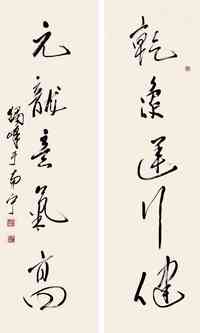 乾象運行健
元龍意氣高
峰于南宁